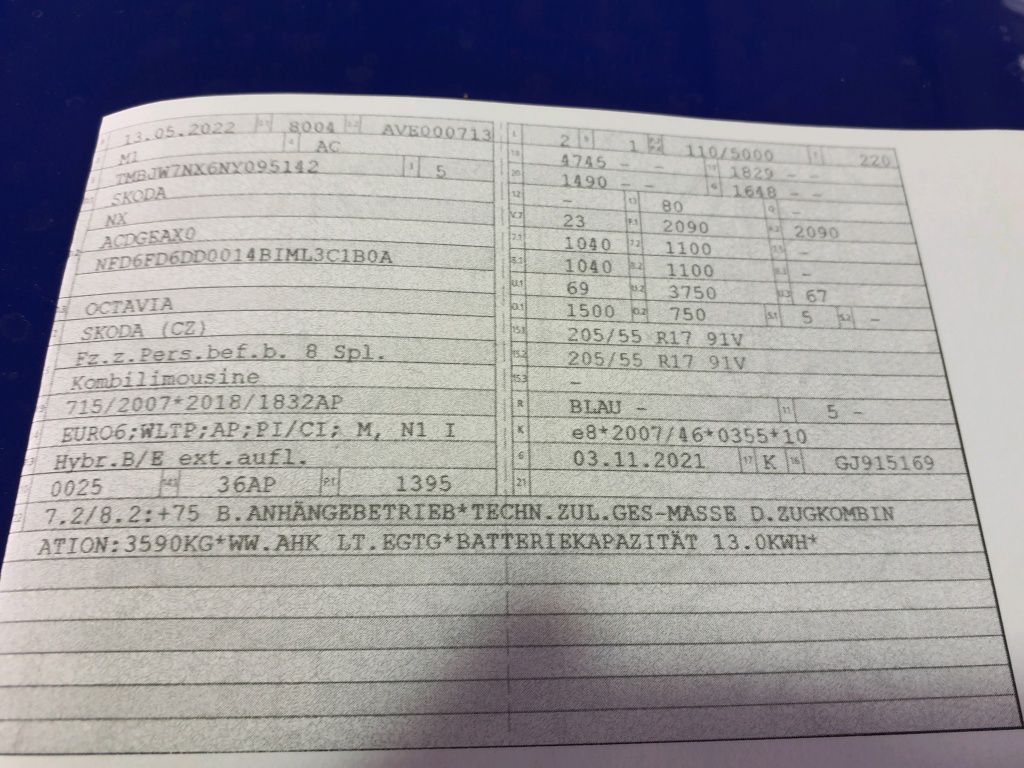 13.05.2022 8004 AVE000713
M1 AC
TMBJW7NX6NY095142 5
SKODA
NX
ACDGEAX0
NFD6FD6DD0014BIML3C1B0A
OCTAVIA
SKODA (CZ)
Fz.z.Pers.bef.b. 8 Spl.
Kombilimousine
715/2007*2018/1832AP
EURO6;WLTP;AP;PI/CI; M, N1 I
Hybr.B/E ext.aufl.
0025 36AP 1395
2 1 110/5000 220
4745 - - 1829 - -
1490 - - 1648 - -
- 80 -
23 2090 2090
1040 1100 -
1040 1100 -
69 3750 67
1500 750 5 -
205/55 R17 91V
205/55 R17 91V
-
R BLAU - 11 5 -
K e8*2007/46*0355*10
6 03.11.2021 17 K 16 GJ915169
21
7.2/8.2:+75 B.ANHÄNGEBETRIEB*TECHN.ZUL.GES-MASSE D.ZUGKOMBIN
ATION:3590KG*WW.AHK LT.EGTG*BATTERIEKAPAZITÄT 13.0KWH*